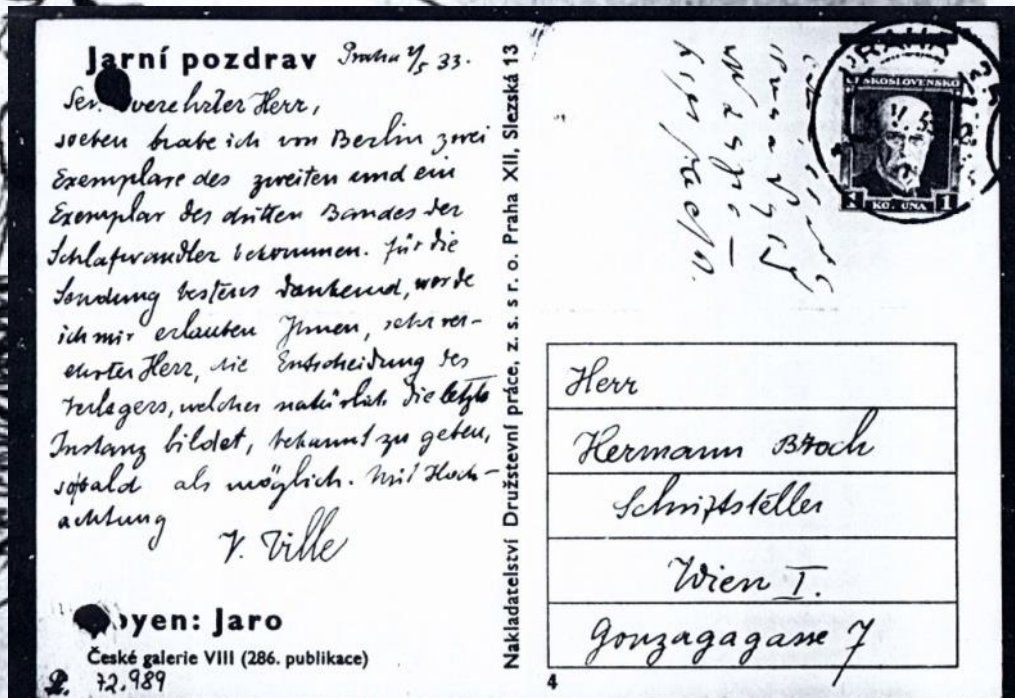 Jarní pozdrav Praha 2/5 33.
Sehr verehrter Herr,
soeben habe ich von Berlin zwei
Exemplare des zweiten und ein
Exemplar des dritten Bandes der
Schlafwandler bekommen. Für die
Sendung bestens dankend, werde
ich mir erlauben Ihnen, sehr ver-
ehrter Herr, die Entscheidung des
Verlegers, welcher natürlich die letzte
Instanz bildet, bekannt zu geben,
sobald als möglich. Mit Hoch-
achtung
yen: Jaro
České galerie VIII (286. publikace)
72.989
Nakladatelství Družstevní práce, z. s. s r. o. Praha XII, Slezská 13
PRAHA
ČESKOSLOVENSKO
1 KORUNA 1
Herr
Hermann Broch
Schriftsteller
Wien I.
Gonzagagasse 7
4